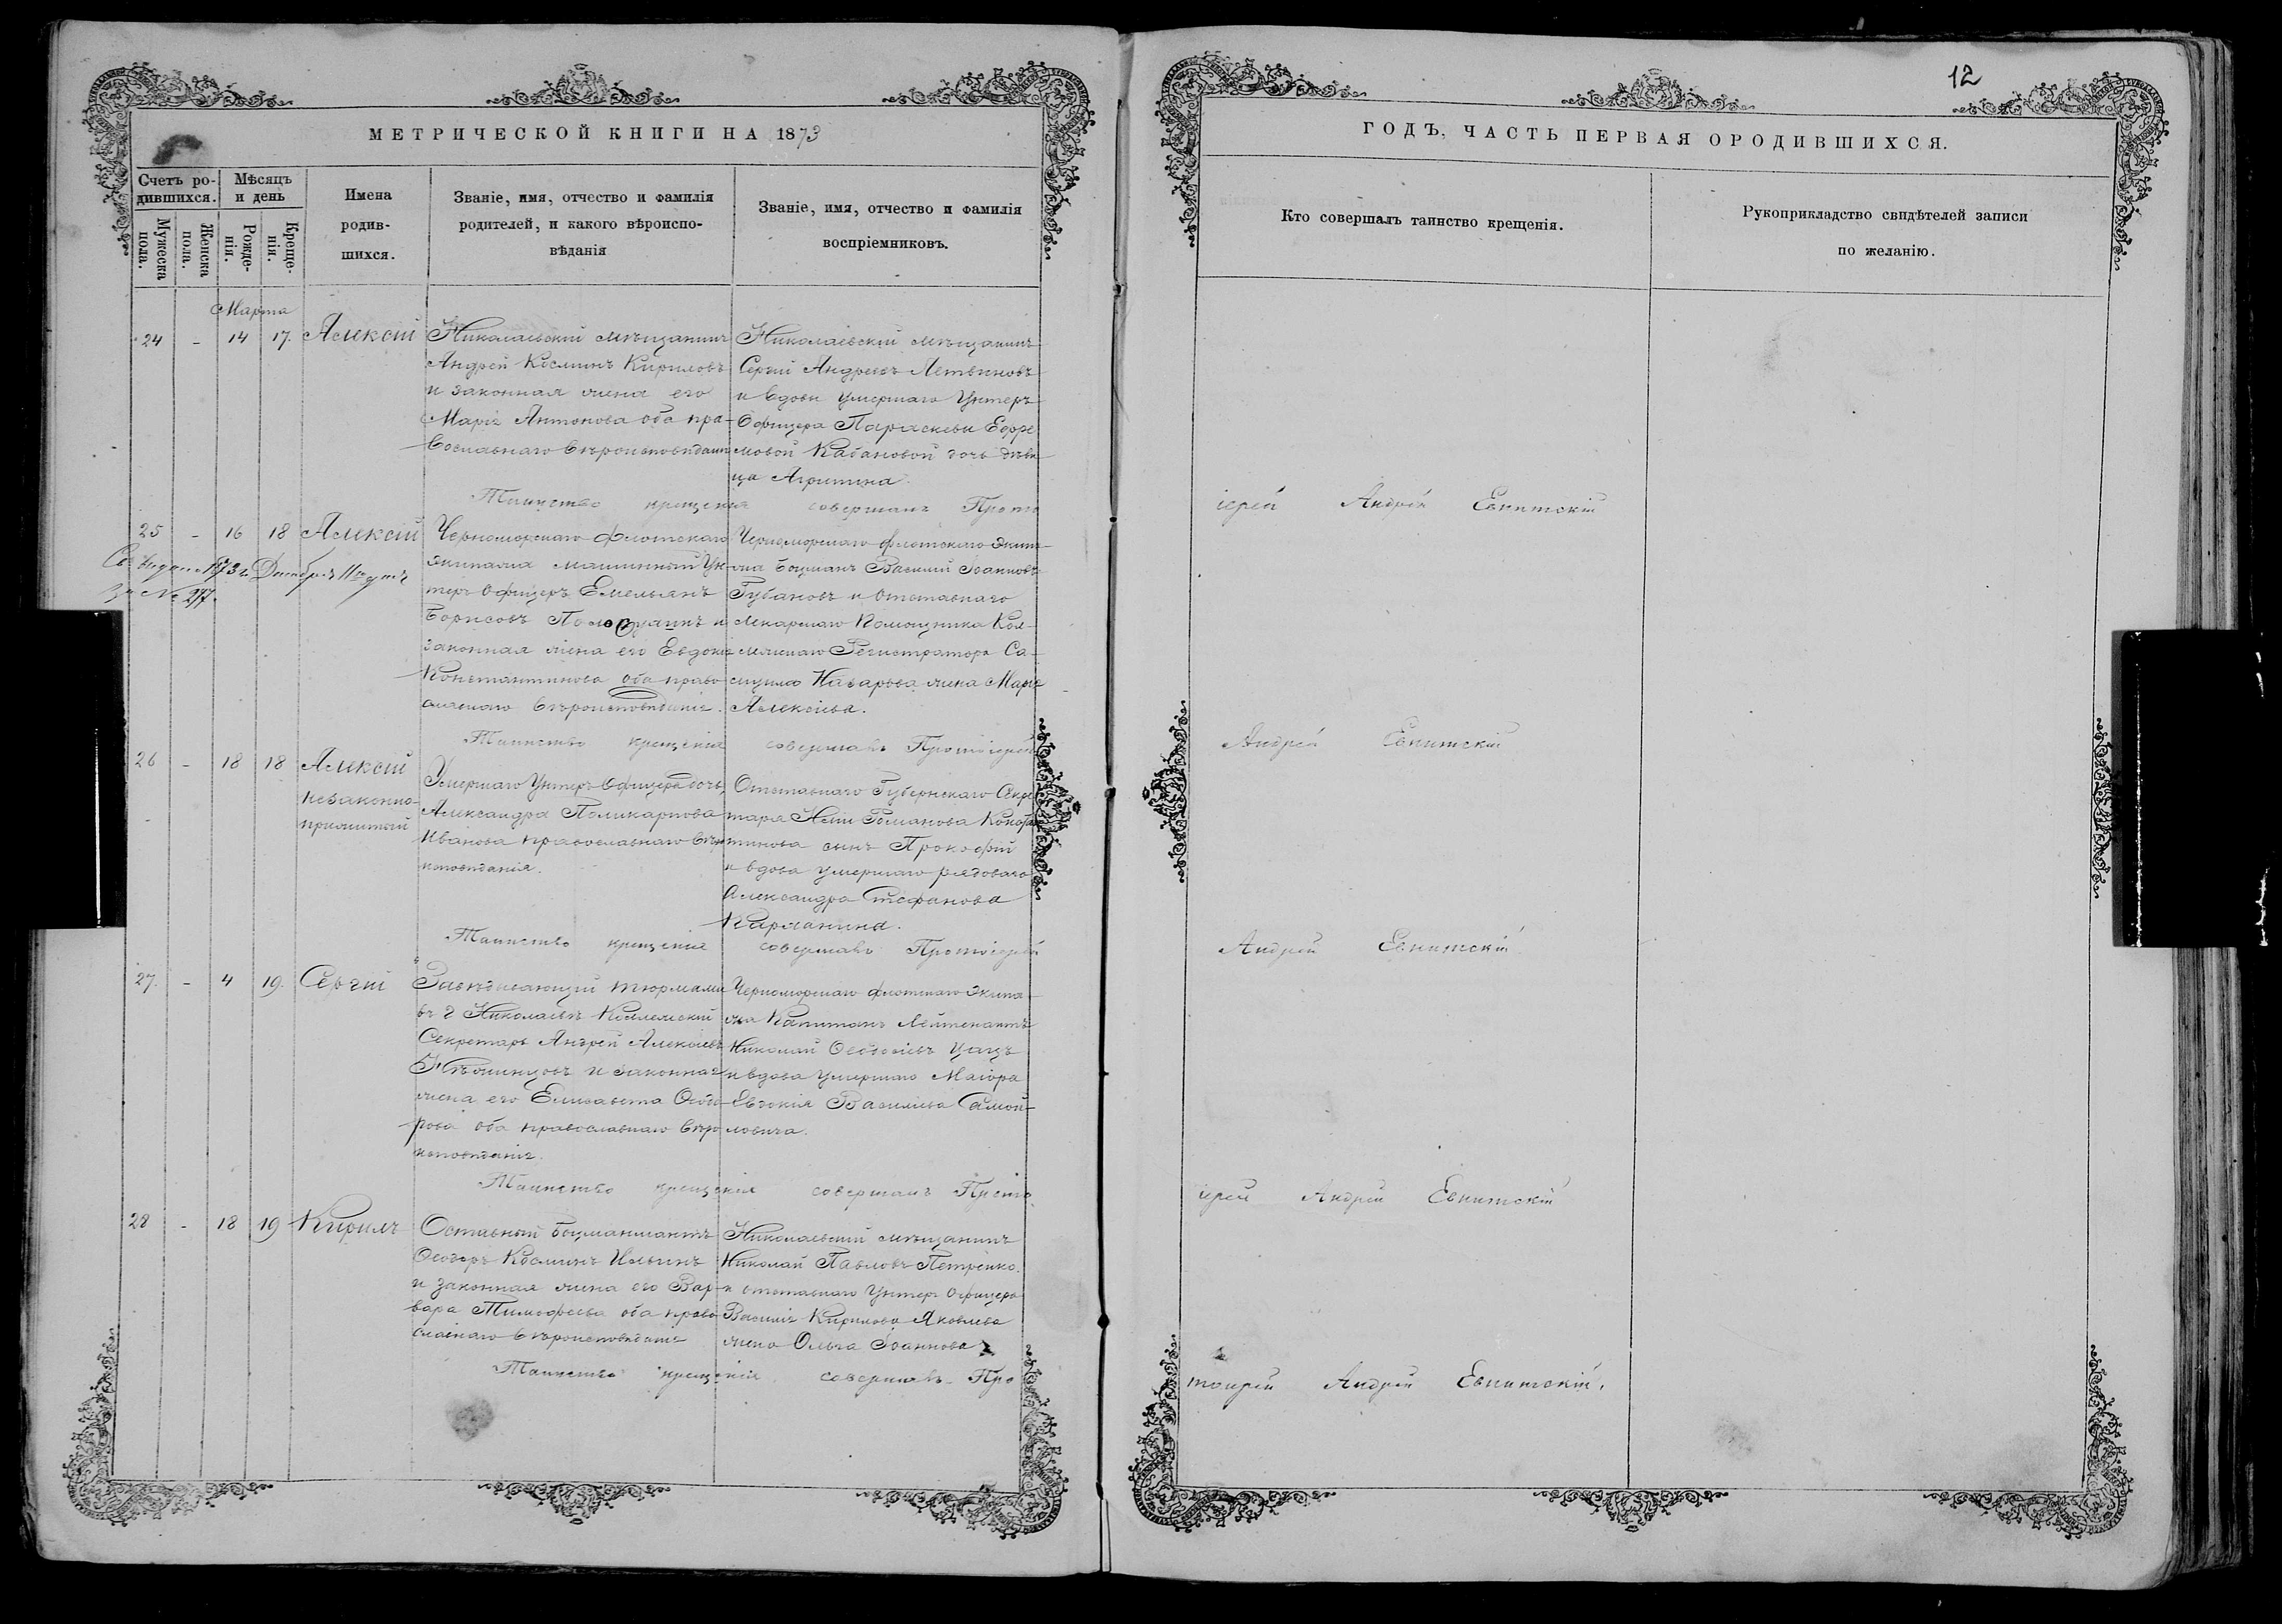 12
МЕТРИЧЕСКОЙ КНИГИ НА 1873
ГОДЪ, ЧАСТЬ ПЕРВАЯ О РОДИВШИХСЯ.
Счетъ ро-
дившихся.
Мужеска пола.
Женска пола.
Мѣсяцъ
и день
Рожде-
нія.
Креще-
нія.
Имена
родив-
шихся.
Званіе, имя, отчество и фамилія
родителей, и какого вѣроиспо-
вѣданія
Званіе, имя, отчество и фамилія
воспріемниковъ.
Кто совершалъ таинство крещенія.
Рукоприкладство свидѣтелей записи
по желанію.
Марта
24 - 14 17. Алексій
Николаевскій мѣщанинъ
Андрей Косминъ Кириловъ
и законная жена его
Марія Антонова оба пра-
вославнаго вѣроисповѣданія
Николаевскій мѣщанинъ
Сергій Андреевъ Летвиновъ
и вдовы умершаго Унтеръ
Офицера Параскевы Ефре
мовой Кабановой дочь дѣви
ца Агрипина.
Таинство крещенія совершалъ Прото
іерей Андрей Евнитскій
25 - 16 18 Алексій
1873 г. Декабря 11 дня
за № 277.
Черноморскаго флотскаго
экипажа машинный Ун
теръ Офицеръ Емельянъ
Борисовъ и
законная жена его Евдокія
Константинова оба право
славнаго вѣроисповѣданія.
Черноморскаго флотскаго экип
ажа Боцманъ Василій Іоанновъ
Губановъ и Отставнаго
Лекарскаго Помощника Кол-
лежскаго Регистратора Са-
муила Назарьва жена Марія
Алексіева.
Таинство крещенія совершалъ Протоіерей
Андрей Евнитскій
26 - 18 18 Алексій
незаконно-
прижитый
Умершаго Унтеръ-Офицера дочь,
Александра Поликарпова
Иванова православнаго вѣро
исповѣданія.
Отставнаго Губернскаго Секре
таря Романова
сынъ Прокофій
и вдова умершаго рядоваго
Александра Стефанова
Карманина.
Таинство крещенія совершалъ Протоіерей
Андрей Евнитскій
27. - 4 19. Сергій
Завѣдывающій тюрмами
въ г Николаевѣ Коллежскій
Секретарь Андрей Алексіевъ
и законная
жена его Елисавета Ѳеодо-
рова оба православнаго вѣро
исповѣданія.
Черноморскаго флотскаго экипа-
жа Капитанъ Лейтенантъ
Николай Ѳеодосіевъ Цацъ
и вдова умершаго Маіора
Евгенія Василіева Самой-
ловича.
Таинство крещенія совершалъ Прото
іерей Андрей Евнитскій
28 - 18 19 Кирилъ
Оставный Боцманматъ
Ѳеодоръ Косминъ Ильинъ
и законная жена его Вар-
вара Тимофеева оба право
славнаго вѣроисповѣданія
Николаевскій мѣщанинъ
Николай Павловъ Петренко.
и отставнаго Унтеръ Офицера
Василія Кирилова Яковлева
жена Ольга Іоаннова
Таинство крещенія совершалъ Про
тоіерей Андрей Евнитскій.